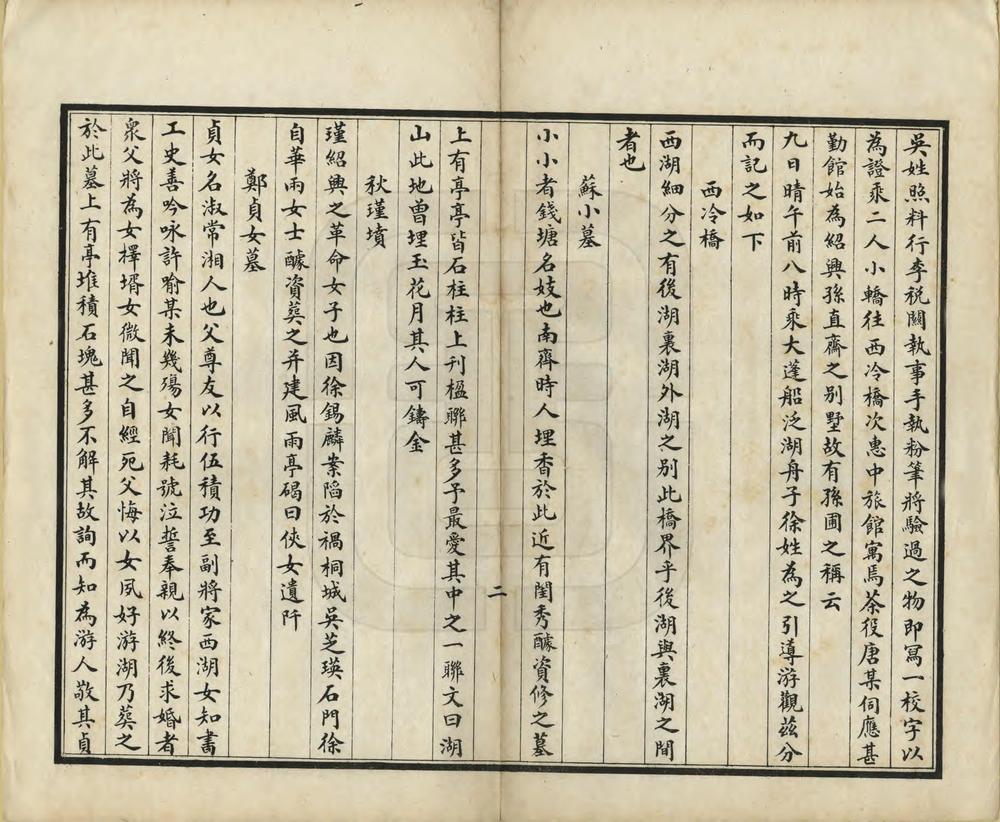 吳姓照料行李稅關執事手執粉筆將驗過之物即冩一校字以
為證乘二人小轎往西冷橋次惠中旅館寓焉茶役唐某伺應甚
勤館始為紹興孫直齋之別墅故有孫圃之稱云
九日晴午前八時乘大蓬船泛湖舟子徐姓為之引導游觀茲分
而記之如下
西冷橋
西湖細分之有後湖裏湖外湖之別此橋界乎後湖與裏湖之間
者也
蘇小墓
小小者錢塘名妓也南齊時人埋香於此近有閨秀醵資修之墓
二
上有亭亭皆石柱柱上刊楹聯甚多予最愛其中之一聯文曰湖
山此地曾埋玉花月其人可鑄金
秋瑾墳
瑾紹興之革命女子也因徐錫麟案陷於禍桐城吳芝瑛石門徐
自華兩女士醵資葬之并建風雨亭碣曰俠女遺阡
鄭貞女墓
貞女名淑常湘人也父尊友以行伍積功至副將家西湖女知書
工史善吟咏許喻某未幾殤女聞耗號泣誓奉親以終後求婚者
衆父將為女擇壻女微聞之自經死父悔以女夙好游湖乃葬之
於此墓上有亭堆積石塊甚多不解其故詢而知為游人敬其貞